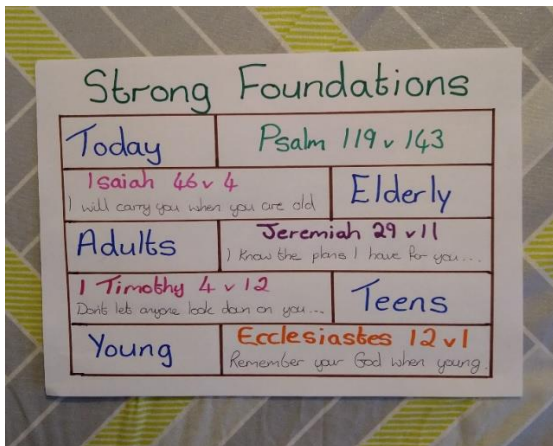 Strong Foundations
Today
Psalm 119 v 143
Isaiah 46 v 4
I will carry you when you are old
Elderly
Adults
Jeremiah 29 v 11
I know the plans I have for you...
1 Timothy 4 v 12
Don't let anyone look down on you...
Teens
Young
Ecclesiastes 12 v 1
Remember your God when young.